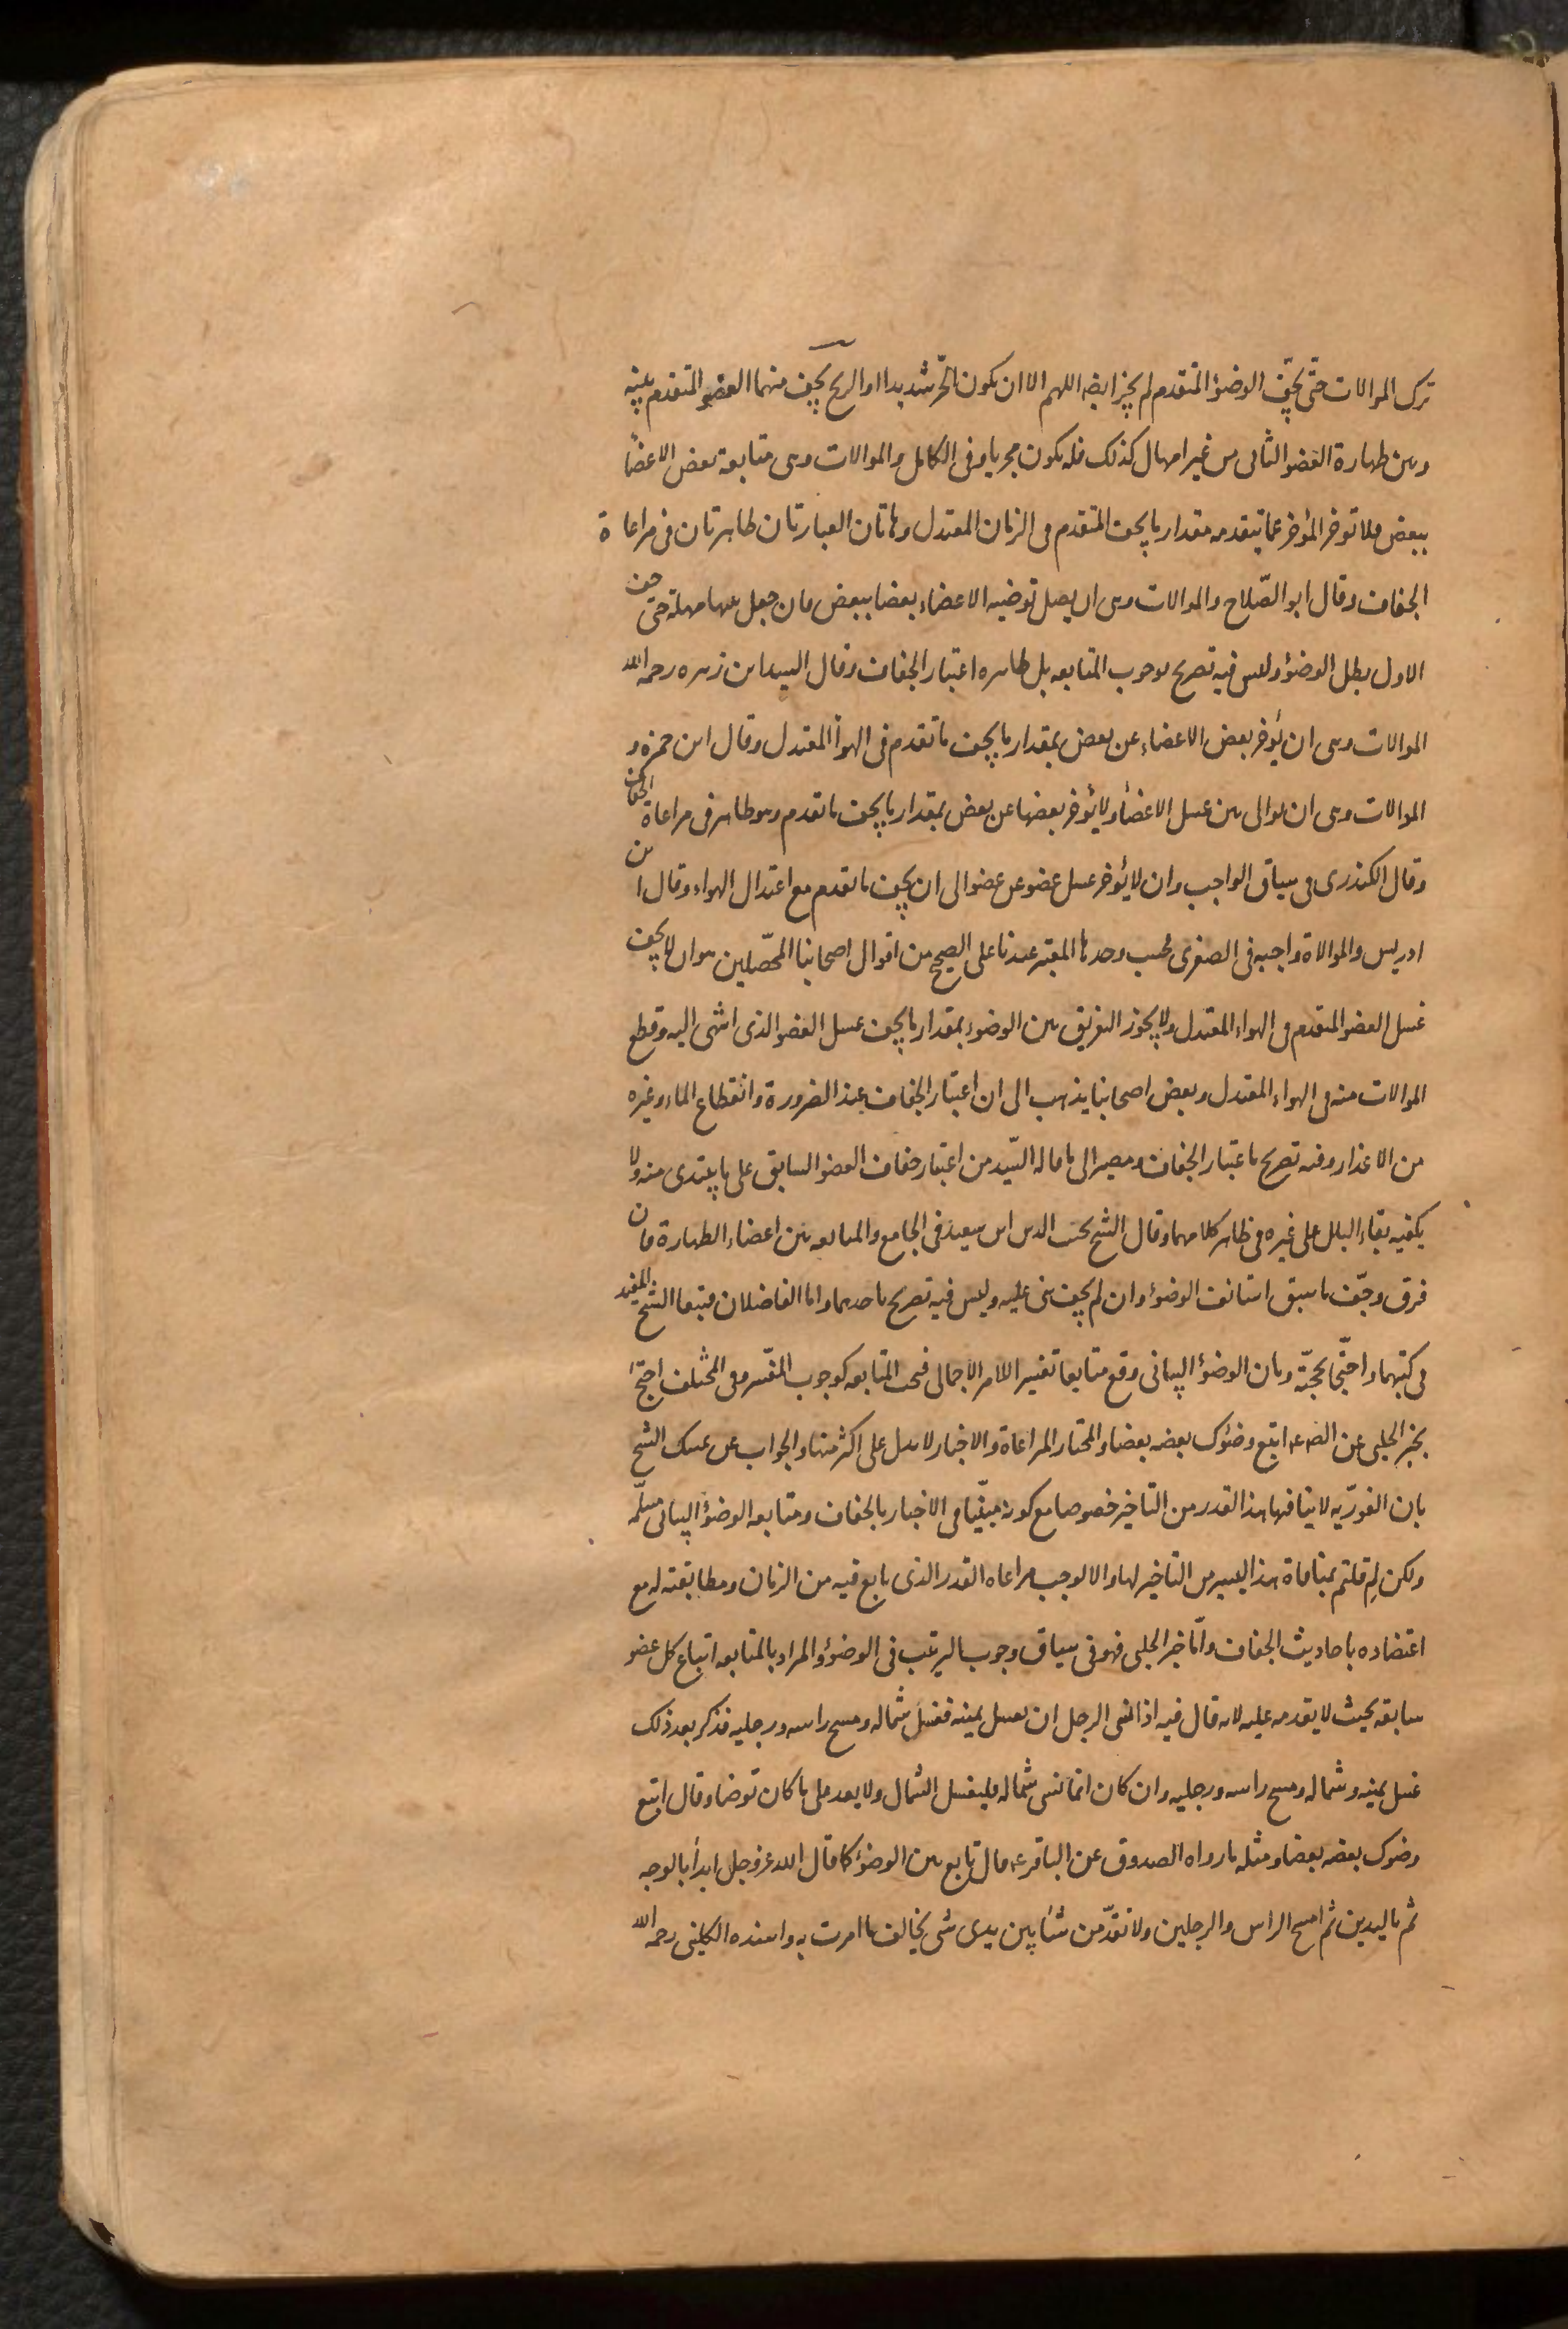 ترك الموالات حتى يجفّ الوضوُ المتقدم لم يجز ايضه اللهم الا ان يكون الحرّ شديدا او الريح يجف منهما العضو المتقدم بينه
وبين طهارة العضو الثانى من غير امهال كذلك فله يكون مجريا وفى الكامل والموالات وهى متابعة بعض الاعضأ
ببعض فلا توخر المؤخر عما يتقدمه مقدار ما يجف المتقدم فى الزمان المعتدل وهاتان العبارتان ظاهرتان فى مراعاة
الجفاف وقال ابو الصّلاح والموالات وهى ان يصل توضيه الاعضاء بعضا ببعض فان جعل بينها مهلة حتى جف
الاول بطل الوضؤ وليس فيه تصريح بوجوب المتابعه بل ظاهره اعتبار الجفاف وقال السيد ابن زهره رحمه الله
الموالات وهى ان يُؤخر بعض الاعضاء عن بعض بمقدار ما يجف ما تقدم فى الهوأ المعتدل وقال ابن حمزه و
الموالات وهى ان يوالى بين غسل الاعضأ ولا يُؤخر بعضها عن بعض بمقدار ما يجف ما تقدم وهو ظاهر فى مراعاة الجفاف
وقال الكندرى فى سياق الواجب وان لا يُؤخر غسل عضو عن عضو الى ان يجف ما تقدم مع اعتدال الهواء وقال ابن
ادريس والموالاة واجبه فى الصغرى فحسب وحدها المعتبر عندنا على الصحيح من اقوال اصحابنا المحصّلين هو ان لا يجف
غسل العضو المتقدم فى الهواء المعتدل ولا يجوز التفريق بين الوضوء بمقدار ما يجف غسل العضو الذى انتهى اليه وقطع
الموالات منه فى الهواء المعتدل وبعض اصحابنا يذهب الى ان اعتبار الجفاف عند الضرورة وانقطاع الماء وغيره
من الاعذار وفيه تصريح باعتبار الجفاف ومصير الى ما قاله السّيد من اعتبار جفاف العضو السابق على ما يبتدى منه ولا
يكفيه بقاء البلل على غيره فى ظاهر كلامهما وقال الشيخ نجيب الدين ابن سعيد فى الجامع والمتابعه بين اعضاء الطهارة فان
فرق وجفّ ما سبق استانف الوضوُ وان لم يجف بنى عليه وليس فيه تصريح باحدهما واما الفاضلان فتبعا الشيخ المفيد
فى كتبهما واحتجّا بحجّة وبان الوضوُ البيانى وقع متابعا تفسير اللامر الاجمالى فيجب المتابعه كوجوب المفسّر وفى المختلف احتجّ
بخبر الحلبى عن الصّ ع اتبع وضوُك بعضه بعضا والمختار المراعاة والاخبار لا تدل على اكثر منها والجواب عن تمسك الشيخ
بان الفوريّه لا ينافيها هذا القدر من التاخير خصوصا مع كونه مبيّنا فى الاخبار بالجفاف ومتابعه الوضوُ البيانى مسلّمه
ولكن لِم قلتم بمنافاة هذا اليسير من التاخير لها والا لوجب مراعاه القدر الذى تابع فيه من الزمان ومطابقته له مع
اعتضاده باحاديث الجفاف وامّا خبر الحلبى فهو فى سياق وجوب الترتيب فى الوضوُ والمراد بالمتابعه اتباع كل عضو
سابقه بحيث لا يقدمه عليه لانه قال فيه اذا نسى الرجل ان يغسل يمينه فغسل شماله ومسح راسه ورجليه فذكر بعد ذلك
غسل يمينه وشماله ومسح راسه ورجليه وان كان انما نسى شماله فليغسل الشمال ولا يعد على ما كان توضا وقال اتبع
وضوك بعضه بعضا ومثله ما رواه الصدوق عن الباقر ع قال تابع بين الوضوُ كما قال الله عز وجل ابدأ بالوجه
ثم باليدين ثم امسح الراس والرجلين ولا تقدّمن شئا بين يدى شى يخالف ما امرت به واسنده الكلينى رحمه الله